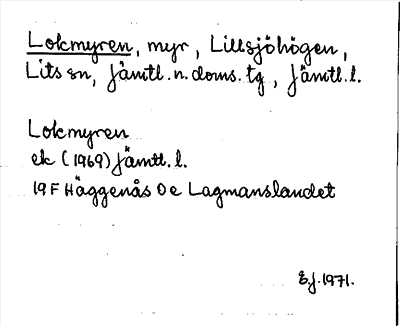 Lokmyren, myr, Lillsjöhögen,
Lits sn, Jämtl. n. doms. tg, Jämtl. l.
Lokmyren
ek (1969) Jämtl. l.
19 F Häggenås 0 e Lagmanslandet
E.J. 1971.